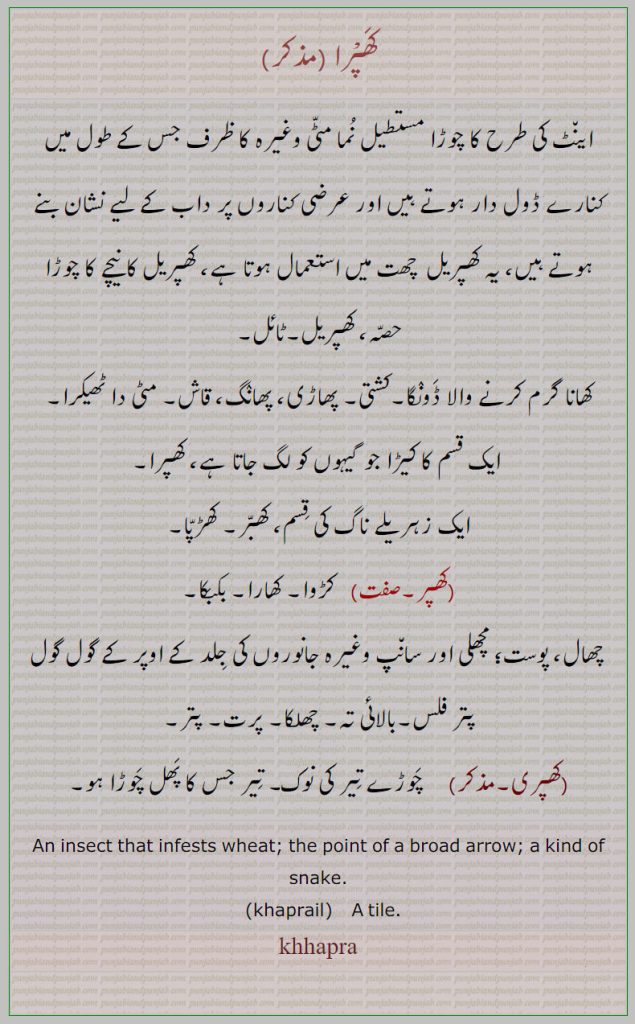 کھَپْرا (مذکر)
اینّٹ کی طرح کا چوڑا مستطیل نُما مٹّی وغیرہ کا ظرف جس کے طول میں
کنارے ڈول دار ہوتے ہیں اور عرضی کناروں پر داب کے لیے نشان بنے
ہوتے ہیں، یہ کھپریل چھت میں استعمال ہوتا ہے، کھپریل کا نیچے کا چوڑا
حصّہ، کھپریل۔ٹائل۔
کھانا گرم کرنے والا ڈَونْگا۔کشتی۔ پھاڑی، پھانْگ، قاش۔ مٹی دا ٹھیکرا۔
ایک قسم کا کیڑا جو گیہوں کو لگ جاتا ہے، کھپرا۔
ایک زہریلے ناگ کی قِسم، کھبّر۔ کھڑپّا۔
(کھپر۔صفت) کڑوا۔ کھارا۔ بکبکا۔
چھال، پوست؛ مچھلی اور سانّپ وغیرہ جانوروں کی جِلد کے اوپر کے گول گول
پتر فلس۔بالائی تہ۔ چھلکا۔ پرت۔ پتر۔
(کھپری۔مذکر) چَوڑے تِیر کی نوک۔ تِیر جس کا پَھل چَوڑا ہو۔
An insect that infests wheat; the point of a broad arrow; a kind of
snake.
(khaprail) A tile.
khhapra